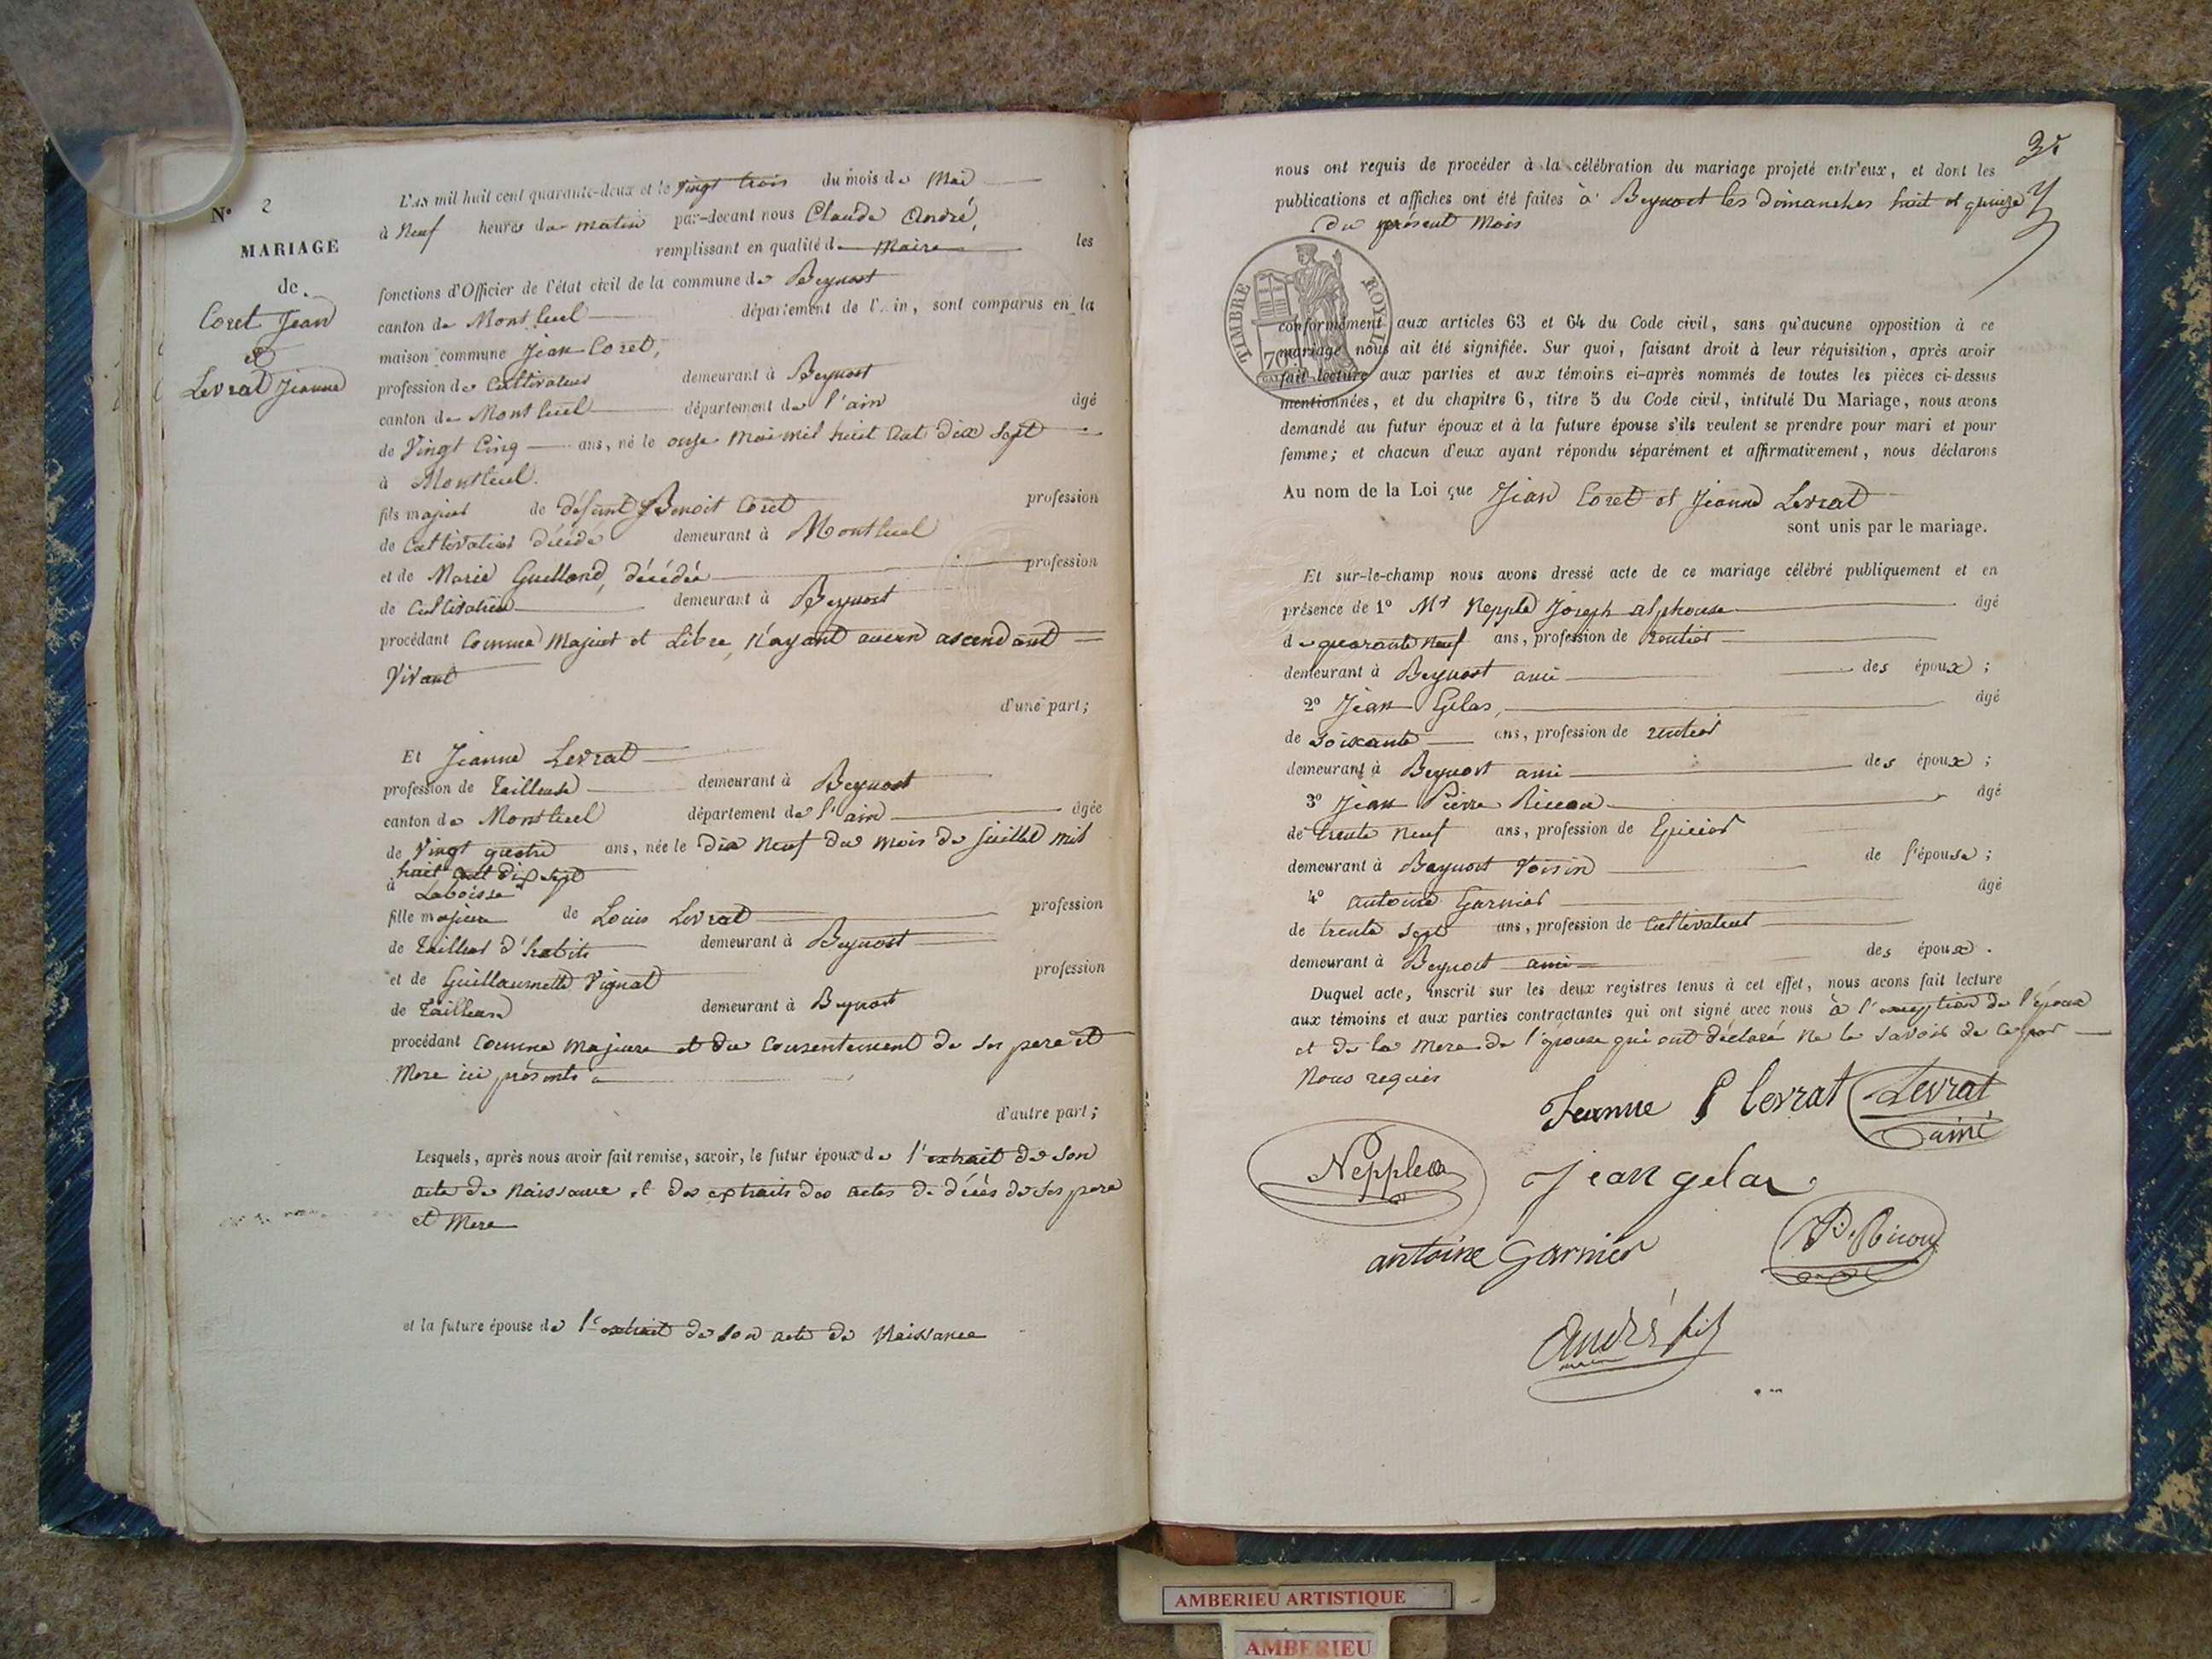 N° 2
MARIAGE
de
Coret Jean
et
Levrat Jeanne
L'AN mil huit cent quarante-deux et le Vingt trois du mois de Mai
à Neuf heures du matin par-devant nous Claude André,
remplissant en qualité de Maire les
fonctions d'Officier de l'état civil de la commune de Beynost
canton de Montluel département de l'Ain, sont comparus en la
maison commune Jean Coret,
profession de Cultivateur demeurant à Beynost
canton de Montluel département de l'ain âgé
de Vingt Cinq ans, né le onze Mai mil huit Cent dix Sept
à Montluel.
fils majeur de défunt Benoit Coret profession
de Cultivateur décédé demeurant à Montluel
et de Marie Guilland, décédée profession
de Cultivatrice demeurant à Beynost
procédant Comme Majeur et Libre, N'ayant aucun ascendant
Vivant
d'une part;
Et Jeanne Levrat
profession de Tailleuse demeurant à Beynost
canton de Montluel département de l'ain âgée
de Vingt quatre ans, née le Dix Neuf du mois de Juillet mil
huit Cent dix sept
à Laboisse
fille majeure de Louis Levrat profession
de Tailleur d'habits demeurant à Beynost
et de Guillaumette Vignat profession
de Tailleuse demeurant à Beynost
procédant Comme majeure et du Consentement de ses pere et
Mere ici présents
d'autre part;
Lesquels, après nous avoir fait remise, savoir, le futur époux de l'extrait de son
acte de Naissance et des extraits des actes de décès de ses pere
et Mere
et la future épouse de l'extrait de son acte de Naissance
nous ont requis de procéder à la célébration du mariage projeté entr'eux, et dont les
publications et affiches ont été faites à Beynost les dimanches huit et quinze
Du présent Mois
TIMBRE ROYAL
70
conformément aux articles 63 et 64 du Code civil, sans qu'aucune opposition à ce
mariage nous ait été signifiée. Sur quoi, faisant droit à leur réquisition, après avoir
fait lecture aux parties et aux témoins ci-après nommés de toutes les pièces ci-dessus
mentionnées, et du chapitre 6, titre 5 du Code civil, intitulé Du Mariage, nous avons
demandé au futur époux et à la future épouse s'ils veulent se prendre pour mari et pour
femme; et chacun d'eux ayant répondu séparément et affirmativement, nous déclarons
Au nom de la Loi que Jean Coret et Jeanne Levrat
sont unis par le mariage.
Et sur-le-champ nous avons dressé acte de ce mariage célébré publiquement et en
présence de 1° Mr Nepple Joseph alphonse âgé
de quarante Neuf ans, profession de Rentier
demeurant à Beynost ami des époux;
2° Jean Gelas, âgé
de Soixante ans, profession de rentier
demeurant à Beynost ami des époux;
3° Jean Pierre Ricou âgé
de trente Neuf ans, profession de Epicier
demeurant à Beynost Voisin de l'épouse;
4° antoine Garnier âgé
de trente Sept ans, profession de Cultivateur
demeurant à Beynost ami des époux.
Duquel acte, inscrit sur les deux registres tenus à cet effet, nous avons fait lecture
aux témoins et aux parties contractantes qui ont signé avec nous à l'exception de l'époux
et de la Mere de l'épouse qui ont déclaré Ne le savoir de ce par
Nous requis
Jeanne Levrat Levrat
ainé
Nepple
Jean gelas
antoine Garnier
P. Ricou
André fils
AMBERIEU ARTISTIQUE
AMBERIEU